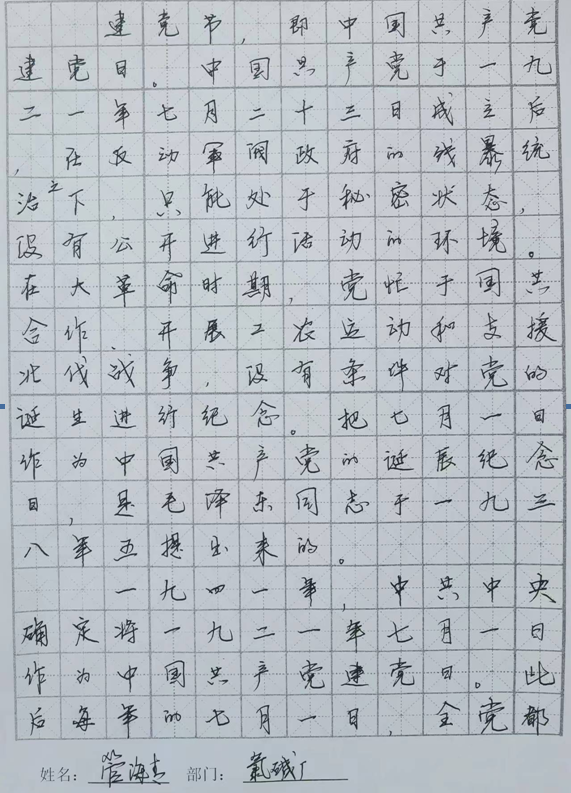 建党节，即中国共产党
建党日。中国共产党于一九
二一年七月二十三日成立后
，在反动军阀政府的残暴统
治之下，只能处于秘密状态，
没有公开进行活动的环境。
在大革命时期，党忙于国共
合作、开展工农运动和支援
北伐战争，没有条件对党的
诞生进行纪念。把七月一日
作为中国共产党的诞辰纪念
日，是毛泽东同志于一九三
八年五提出来的。
一九四一年，中共中央
确定将一九二一年七月一日
作为中国共产党建党日。此
后每年的七月一日，全党都
姓名：管海青 部门：氯碱厂